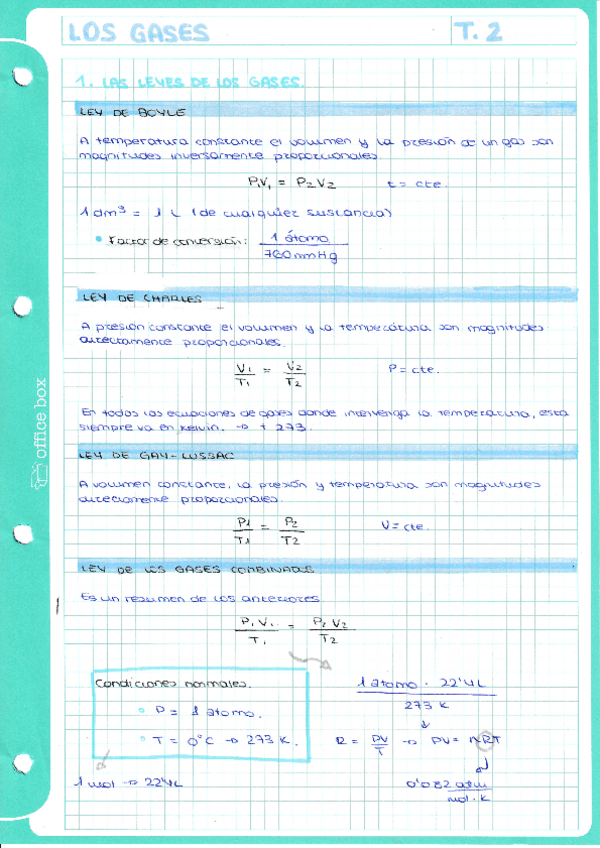 LOS GASES T. 2
1. LAS LEYES DE LOS GASES.
LEY DE BOYLE
A temperatura constante el volumen y la presión de un gas son
magnitudes inversamente proporcionales.
P₁V₁ = P₂V₂ t = cte.
1 dm³ = 1 L (de cualquier sustancia)
• Factor de conversión: 1 átomo / 760 mmHg
LEY DE CHARLES
A presión constante el volumen y la temperatura son magnitudes
directamente proporcionales.
V1/T1 = V2/T2 P = cte.
En todas las ecuaciones de gases donde intervenga la temperatura, esta
siempre va en Kelvin. → + 273.
office box
LEY DE GAY-LUSSAC
A volumen constante, la presión y temperatura son magnitudes
directamente proporcionales.
P1/T1 = P2/T2 V = cte.
LEY DE LOS GASES COMBINADOS
Es un resumen de los anteriores
P₁V₁/T₁ = P₂V₂/T₂
Condiciones normales.
• P = 1 átomo.
• T = 0°C → 273 K.
1 mol → 22'4L
1 átomo · 22'4L / 273 K
R = PV/T → PV = nRT
0'082 atm/mol·K